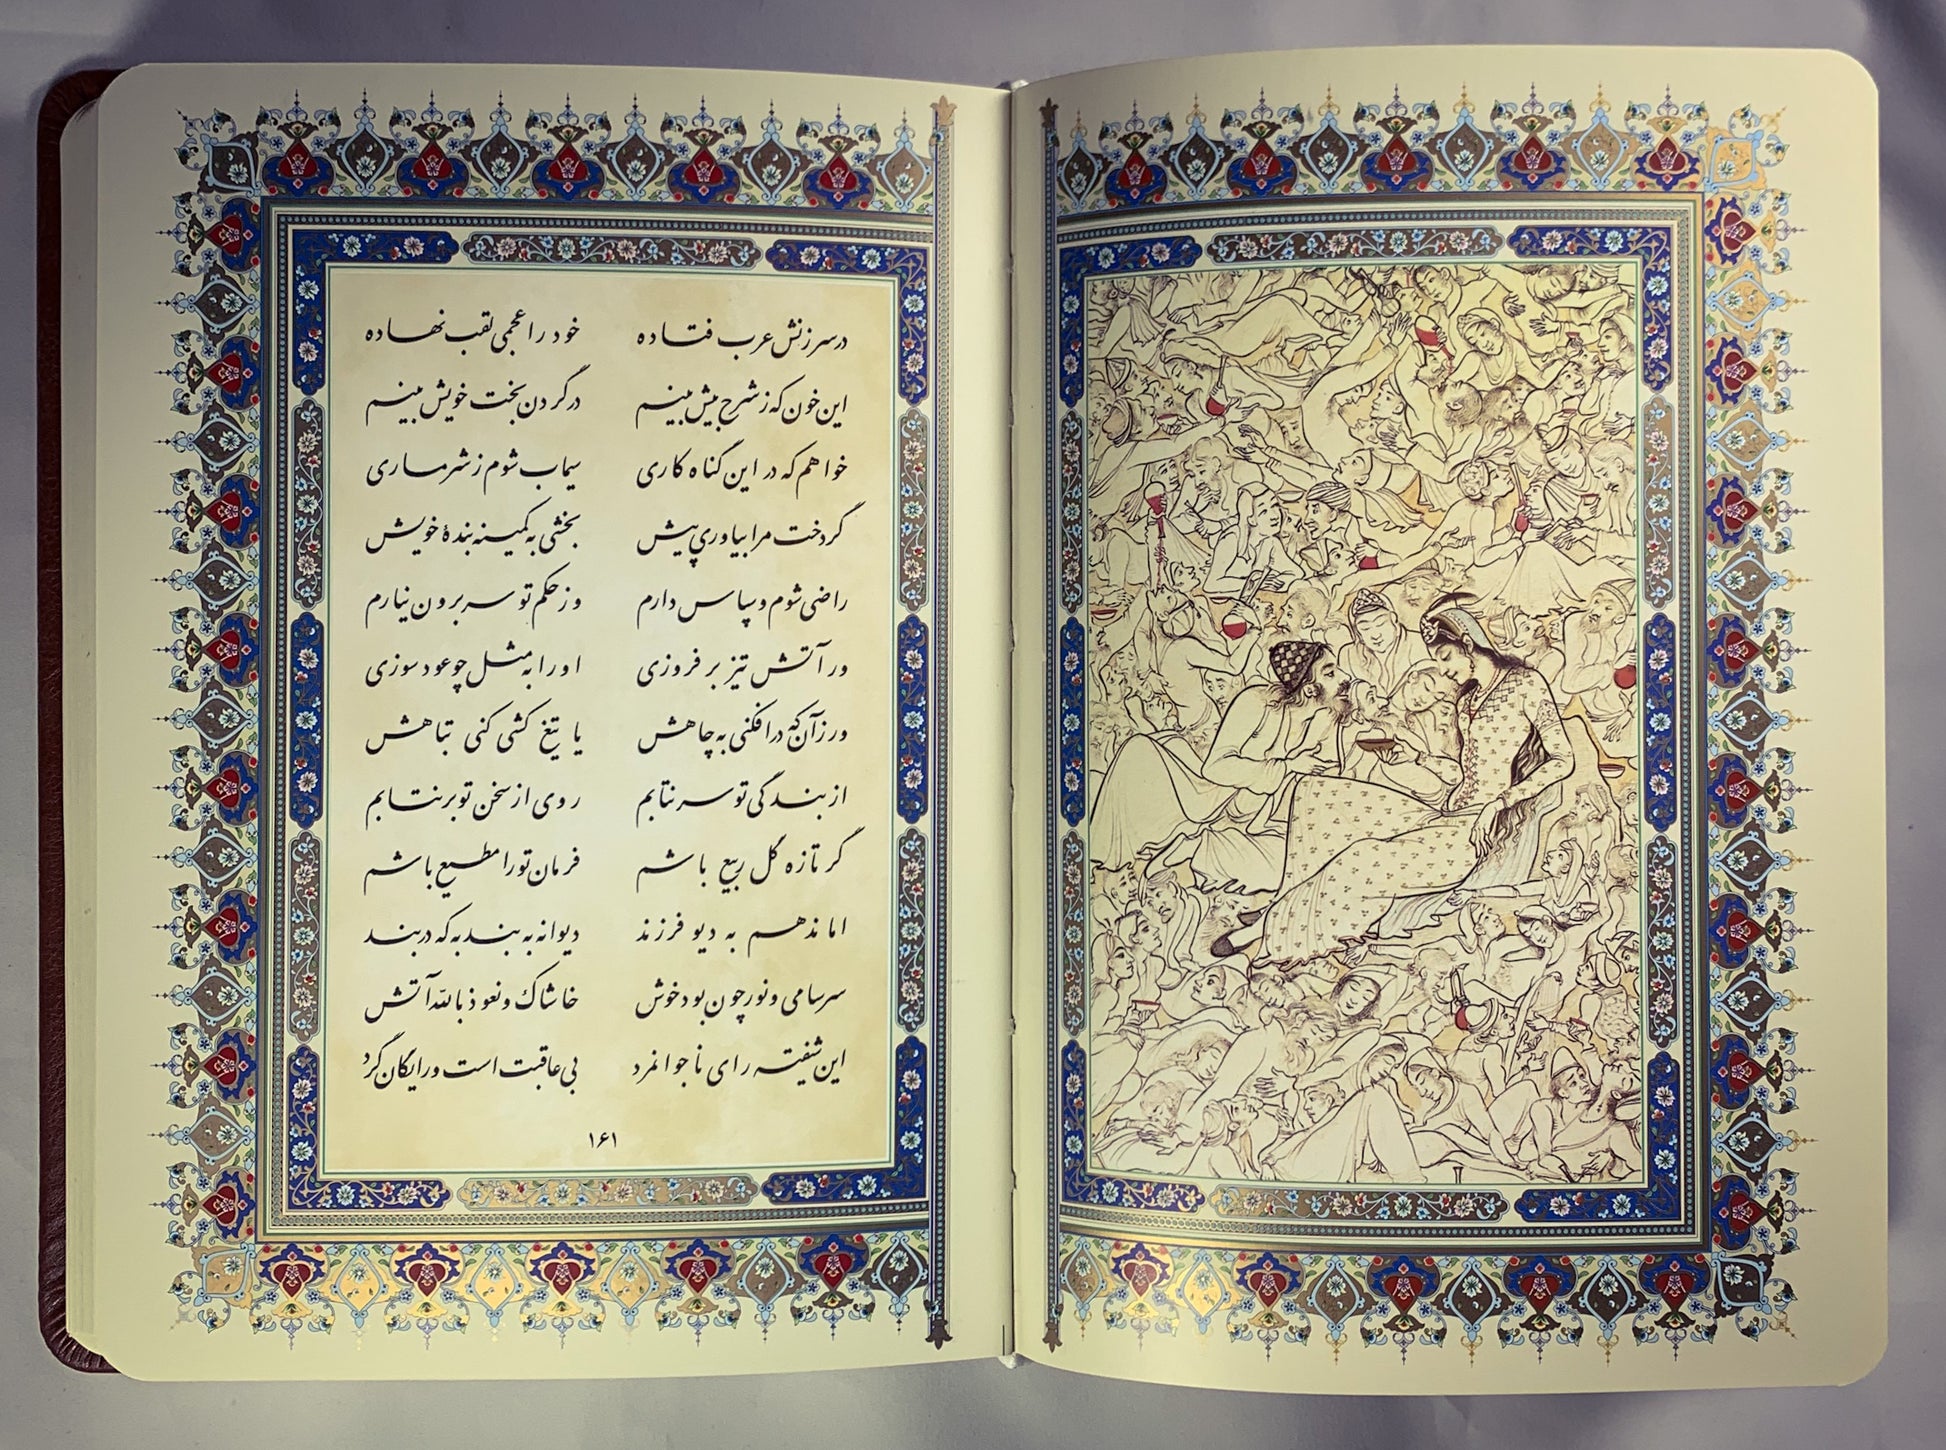 در سرزنش عرب فتاده خود را عجمی لقب نهاده
این خون که ز شرح بیش بینم در گردن بخت خویش بینم
خواهم که در این گناه کاری سیماب شوم ز شرمساری
گر دخت مرا بیاوری پیش بخشی به کمینه بندۀ خویش
راضی شوم و سپاس دارم وز حکم تو سر برون نیارم
ور آتش تیز بر فروزی او را به مثل چو عود سوزی
ور زآن که درافکنی به چاهش یا تیغ کشی کنی تباهش
از بندگی تو سر نتابم روی از سخن تو برنتابم
گر تازه گل ربیع باشم فرمان تو را مطیع باشم
اما ندهم به دیو فرزند دیوانه به بند به که در بند
سرسامی و نور چون بود خوش خاشاک و نعوذ بالله آتش
این شیفته رای ناجوانمرد بی عاقبت است و رایگان گرد
۱۶۱